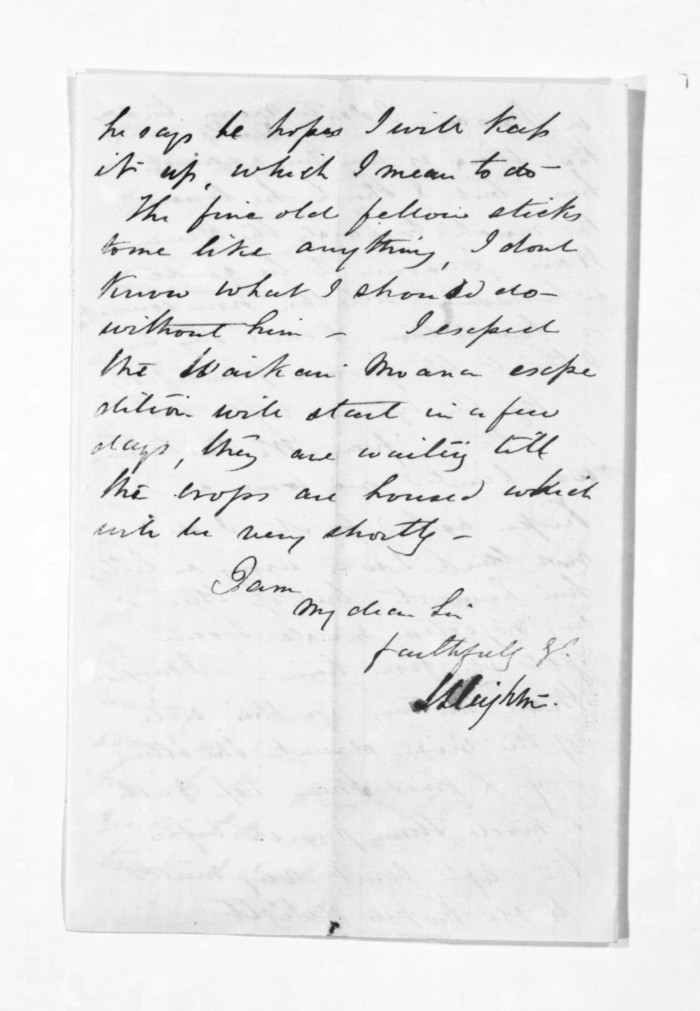 he says he hopes I will keep
it up, which I mean to do —
The fine old fellow sticks
to me like anything, I dont
know what I should do —
without him — I expect
the Waikari Moana expe
dition will start in a few
days, they are waiting till
the crops are housed which
will be very shortly —
I am
My dear Sir
faithfully yrs.